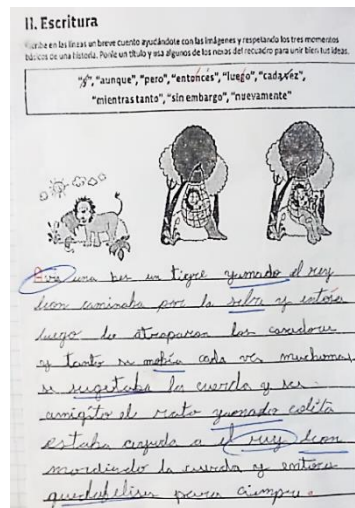 II. Escritura
Escribe en las líneas un breve cuento ayudándote con las imágenes y respetando los tres momentos
básicos de una historia. Ponle un título y usa algunos de los nexos del recuadro para unir bien tus ideas.
"y", "aunque", "pero", "entonces", "luego", "cada vez",
"mientras tanto", "sin embargo", "nuevamente"
una ves un tigre yamado el rey
leon caminaba por la selva y entonse
luego lo atraparon los casadores
y tanto se mobia cada ves muchomas
se sugetaba la cuerda y su
amigito el rato yamado colita
estaba ayuda a el rey leon
mordiendo la cuerda y entonse
quedafelises para ciempre.